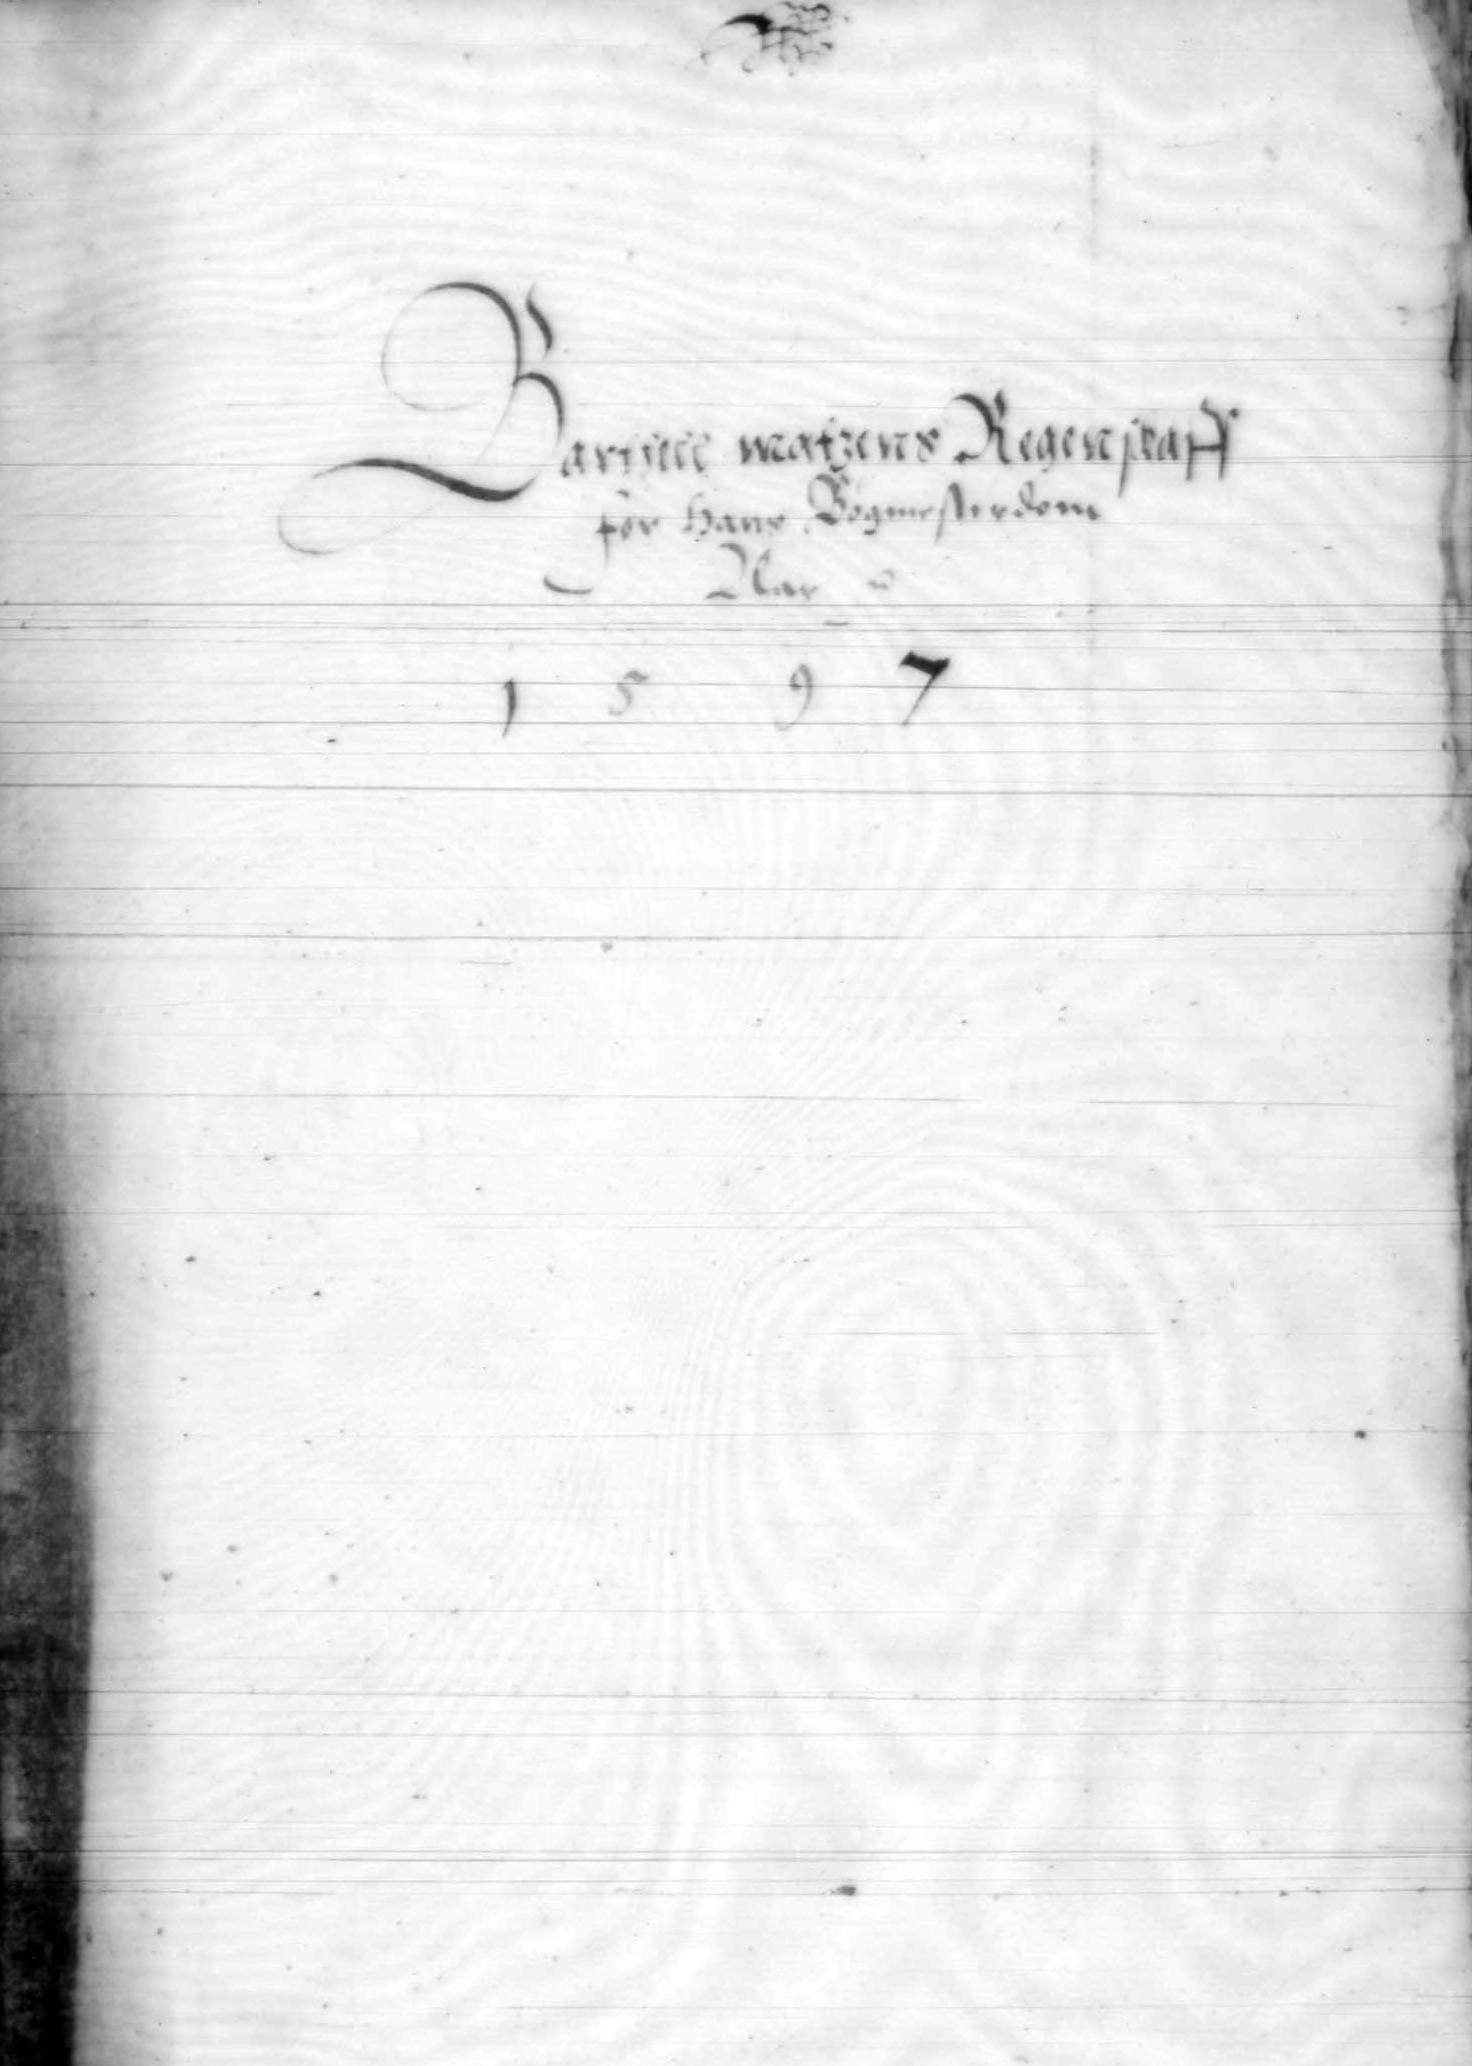 Bartill matzens Regenskaff
for Hans Bogmesterdom
Aar
1 5 9 7